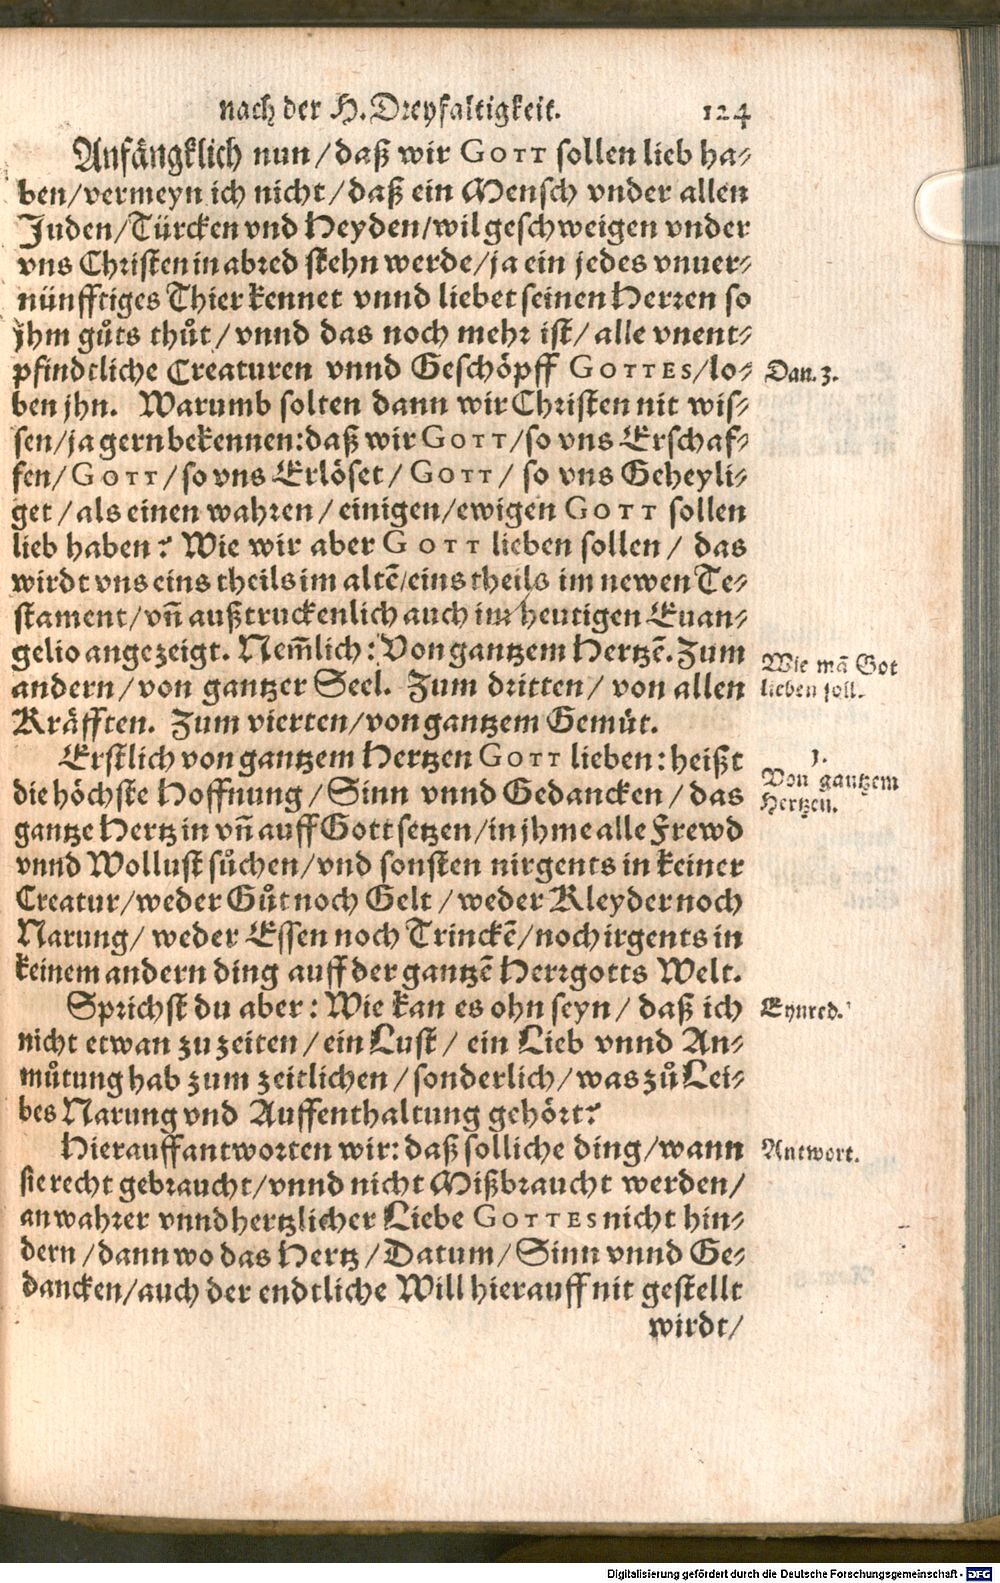 nach der H. Dreyfaltigkeit. 124
Anfängklich nun / daß wir GOTT sollen lieb ha⸗
ben / vermeyn ich nicht / daß ein Mensch vnder allen
Juden / Türcken vnd Heyden / wil geschweigen vnder
vns Christen in abred stehn werde / ja ein jedes vnuer⸗
nünfftiges Thier kennet vnnd liebet seinen Herren so
jhm gůts thůt / vnnd das noch mehr ist / alle vnent⸗
pfindtliche Creaturen vnnd Geschöpff GOTTES / lo⸗
Dan. 3.
ben jhn. Warumb solten dann wir Christen nit wis⸗
sen / ja gern bekennen: daß wir GOTT / so vns Erschaf⸗
fen / GOTT / so vns Erlöset / GOTT / so vns Geheyli⸗
get / als einen wahren / einigen / ewigen GOTT sollen
lieb haben? Wie wir aber GOTT lieben sollen / das
wirdt vns eins theils im altē / eins theils im newen Te⸗
stament / vn̄ außtruckenlich auch im heutigen Euan⸗
gelio angezeigt. Nem̄lich: Von gantzem Hertzē. Zum
Wie mā Got
andern / von gantzer Seel. Zum dritten / von allen
lieben soll.
Kräfften. Zum vierten / von gantzem Gemüt.
Erstlich von gantzem Hertzen GOTT lieben: heißt
1.
Von gantzem
die höchste Hoffnung / Sinn vnnd Gedancken / das
Hertzen.
gantze Hertz in vn̄ auff Gott setzen / in jhme alle Frewd
vnnd Wollust sůchen / vnd sonsten nirgents in keiner
Creatur / weder Gůt noch Gelt / weder Kleyder noch
Narung / weder Essen noch Trinckē / noch irgents in
keinem andern ding auff der gantzē Herrgotts Welt.
Sprichst du aber: Wie kan es ohn seyn / daß ich
Eynred.
nicht etwan zu zeiten / ein Lust / ein Lieb vnnd An⸗
můtung hab zum zeitlichen / sonderlich / was zů Lei⸗
bes Narung vnd Auffenthaltung gehört?
Hierauff antworten wir: daß solliche ding / wann
Antwort.
sie recht gebraucht / vnnd nicht Mißbraucht werden /
an wahrer vnnd hertzlicher Liebe GOTTES nicht hin⸗
dern / dann wo das Hertz / Datum / Sinn vnnd Ge⸗
dancken / auch der endtliche Will hierauff nit gestellt
wirdt /
Digitalisierung gefördert durch die Deutsche Forschungsgemeinschaft - DFG